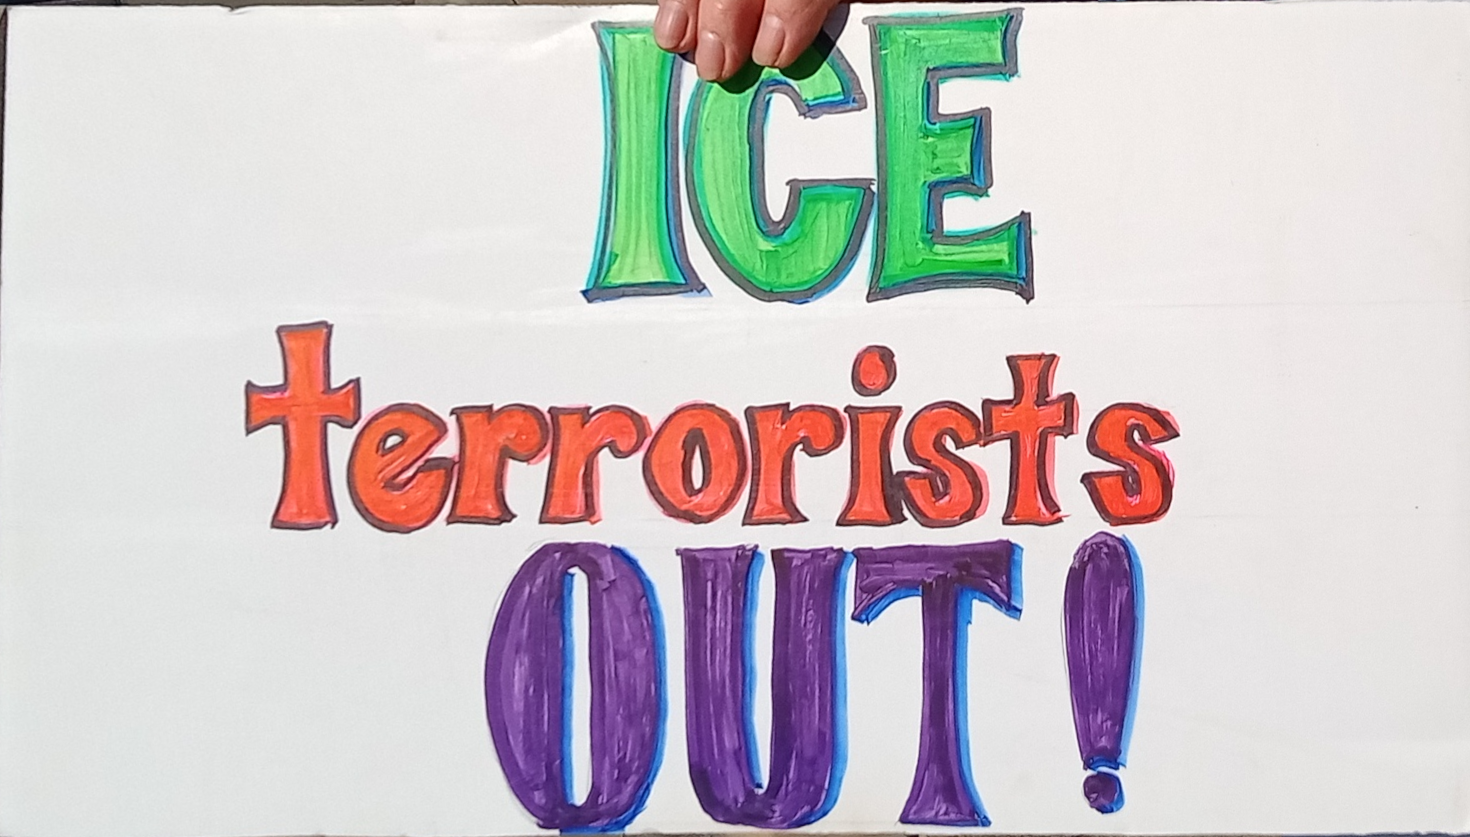 ICE
terrorists
OUT!